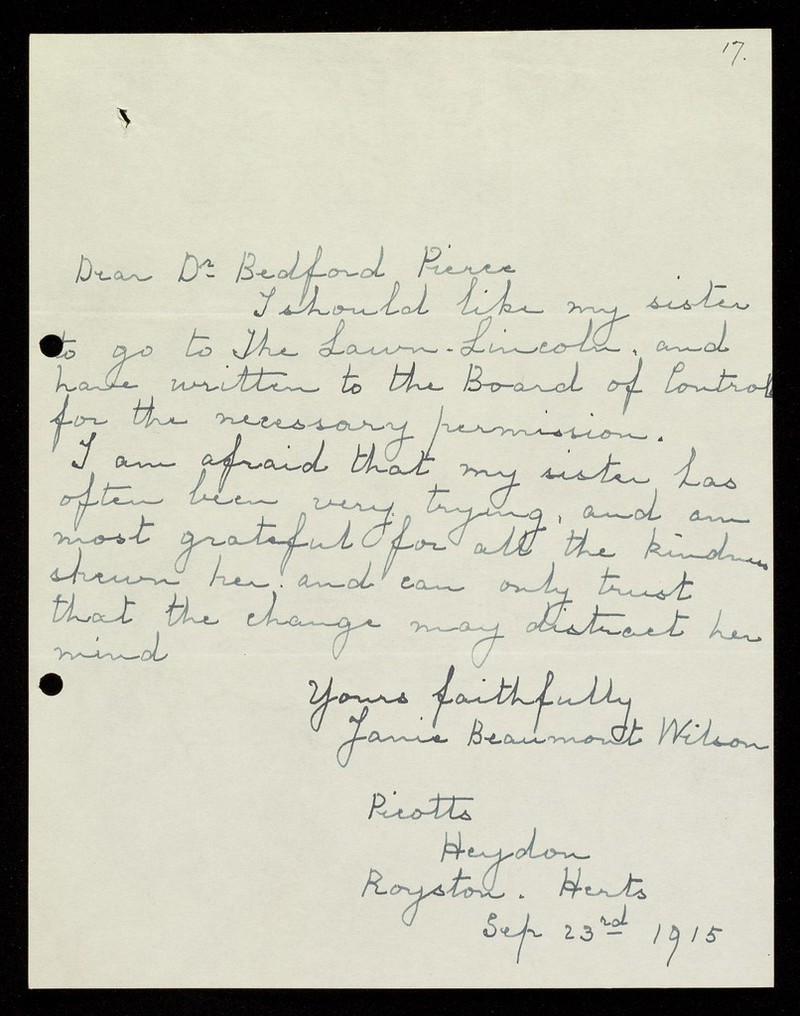 17.
Dear Dr Bedford Pierce
I should like my sister
to go to The Lawn. Lincoln. and
have written to the Board of Control
for the necessary permission.
I am afraid that my sister has
often been very trying, and am
most grateful for all the kindness
shewn her. and can only trust
that the change may distract her
mind
Yours faithfully
Janie Beaumont Wilson
Picotts
Heydon
Royston. Herts
Sep 23rd 1915